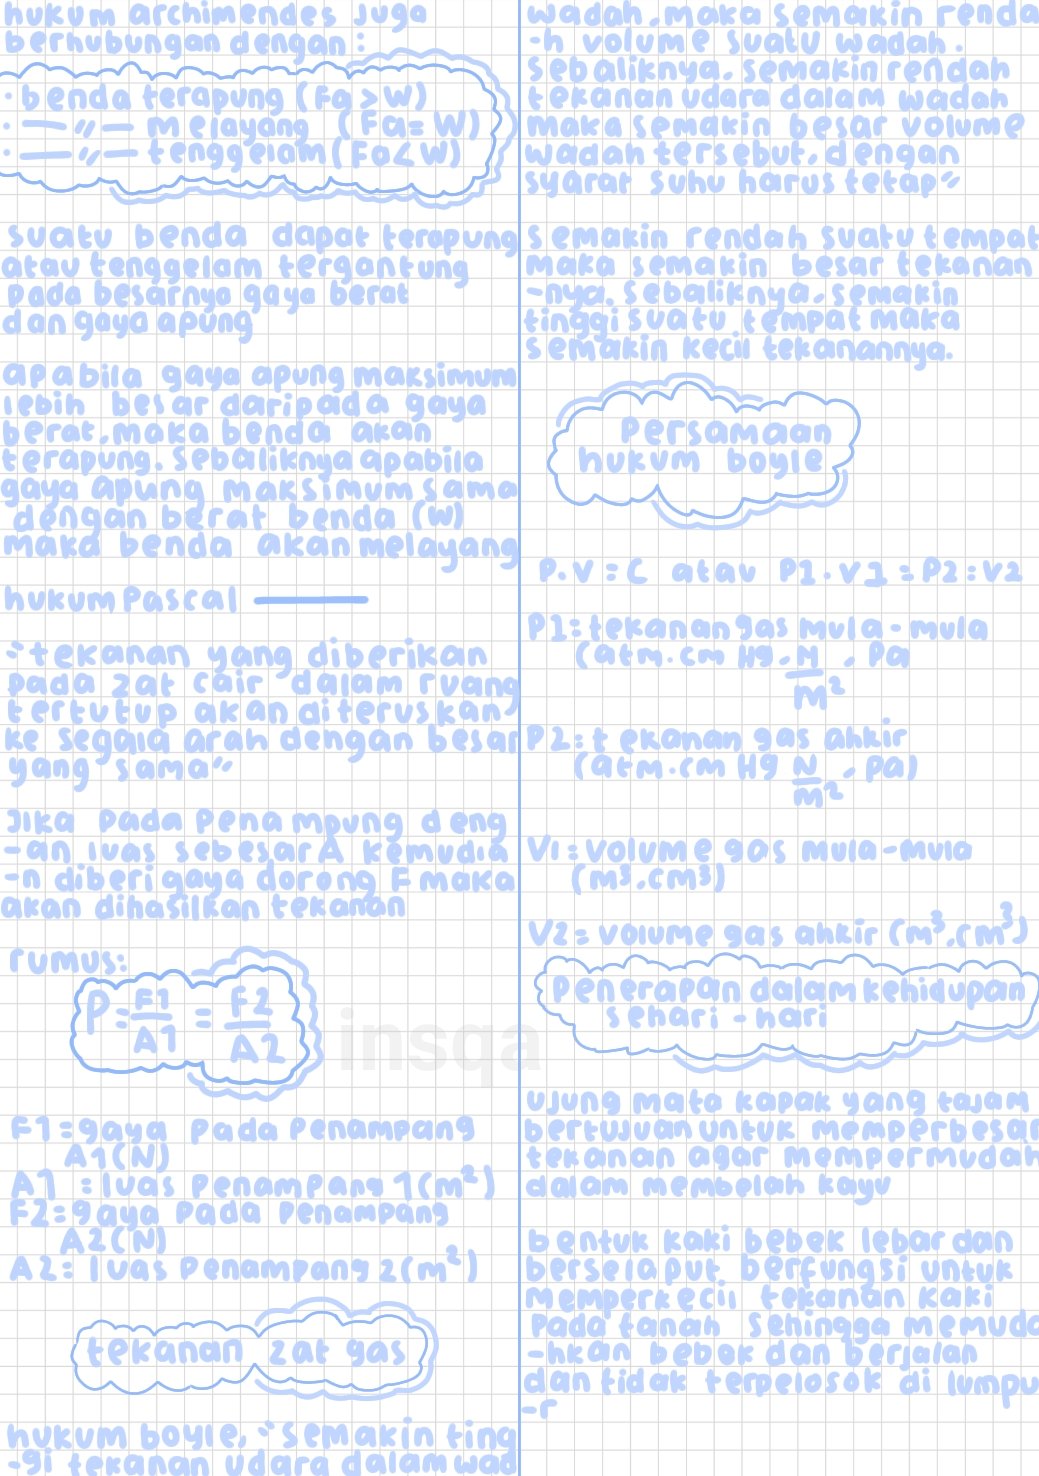 hukum archimendes juga
berhubungan dengan :
· benda terapung (Fa > W)
· — 〃 — melayang (Fa = W)
· — 〃 — tenggelam (Fa < W)
suatu benda dapat terapung
atau tenggelam tergantung
pada besarnya gaya berat
dan gaya apung
apabila gaya apung maksimum
lebih besar daripada gaya
berat, maka benda akan
terapung. Sebaliknya apabila
gaya apung maksimum sama
dengan berat benda (W)
maka benda akan melayang
hukum Pascal
"tekanan yang diberikan
pada zat cair dalam ruang
tertutup akan diteruskan
ke segala arah dengan besar
yang sama"
Jika pada penampung deng
-an luas sebesar A kemudia
-n diberi gaya dorong F maka
akan dihasilkan tekanan
rumus:
P = F1/A1 = F2/A2
insqa
F1 = gaya pada penampang
A1 (N)
A1 = luas penampang 1 (m²)
F2 = gaya pada penampang
A2 (N)
A2 = luas penampang 2 (m²)
tekanan zat gas
hukum boyle, "Semakin ting
-gi tekanan udara dalam wad
wadah, maka semakin renda
-h volume suatu wadah.
Sebaliknya, semakin rendah
tekanan udara dalam wadah
maka semakin besar volume
wadah tersebut, dengan
syarat suhu harus tetap"
Semakin rendah suatu tempat
maka semakin besar tekanan
-nya. Sebaliknya, semakin
tinggi suatu tempat maka
semakin kecil tekanannya.
Persamaan
hukum boyle
P.V = C atau P1.V1 = P2 = V2
P1 = tekanan gas mula-mula
(atm. cm Hg. N/m², Pa
P2 = tekanan gas ahkir
(atm. cm Hg N/m², Pa)
V1 = volume gas mula-mula
(m³, cm³)
V2 = volume gas ahkir (m³, cm³)
Penerapan dalam kehidupan
sehari - hari
ujung mata kapak yang tajam
bertujuan untuk memperbesar
tekanan agar mempermudah
dalam membelah kayu
bentuk kaki bebek lebar dan
berselaput berfungsi untuk
memperkecil tekanan kaki
pada tanah sehingga memuda
-hkan bebek dan berjalan
dan tidak terpelosok di lumpu
-r